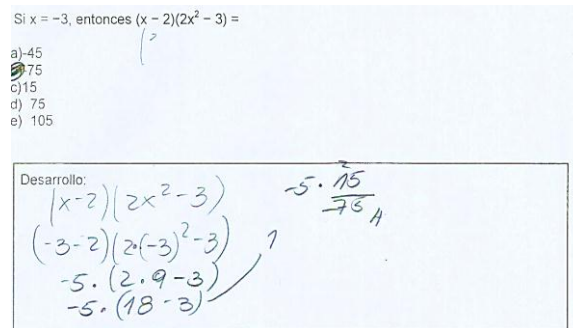 Si x = −3, entonces (x − 2)(2x² − 3) =
a)-45
75
c)15
d) 75
e) 105
Desarrollo:
(x-2)(2x²-3)
(-3-2)(2·(-3)²-3)
-5·(2·9-3)
-5·(18-3)
2
-5·15
-75